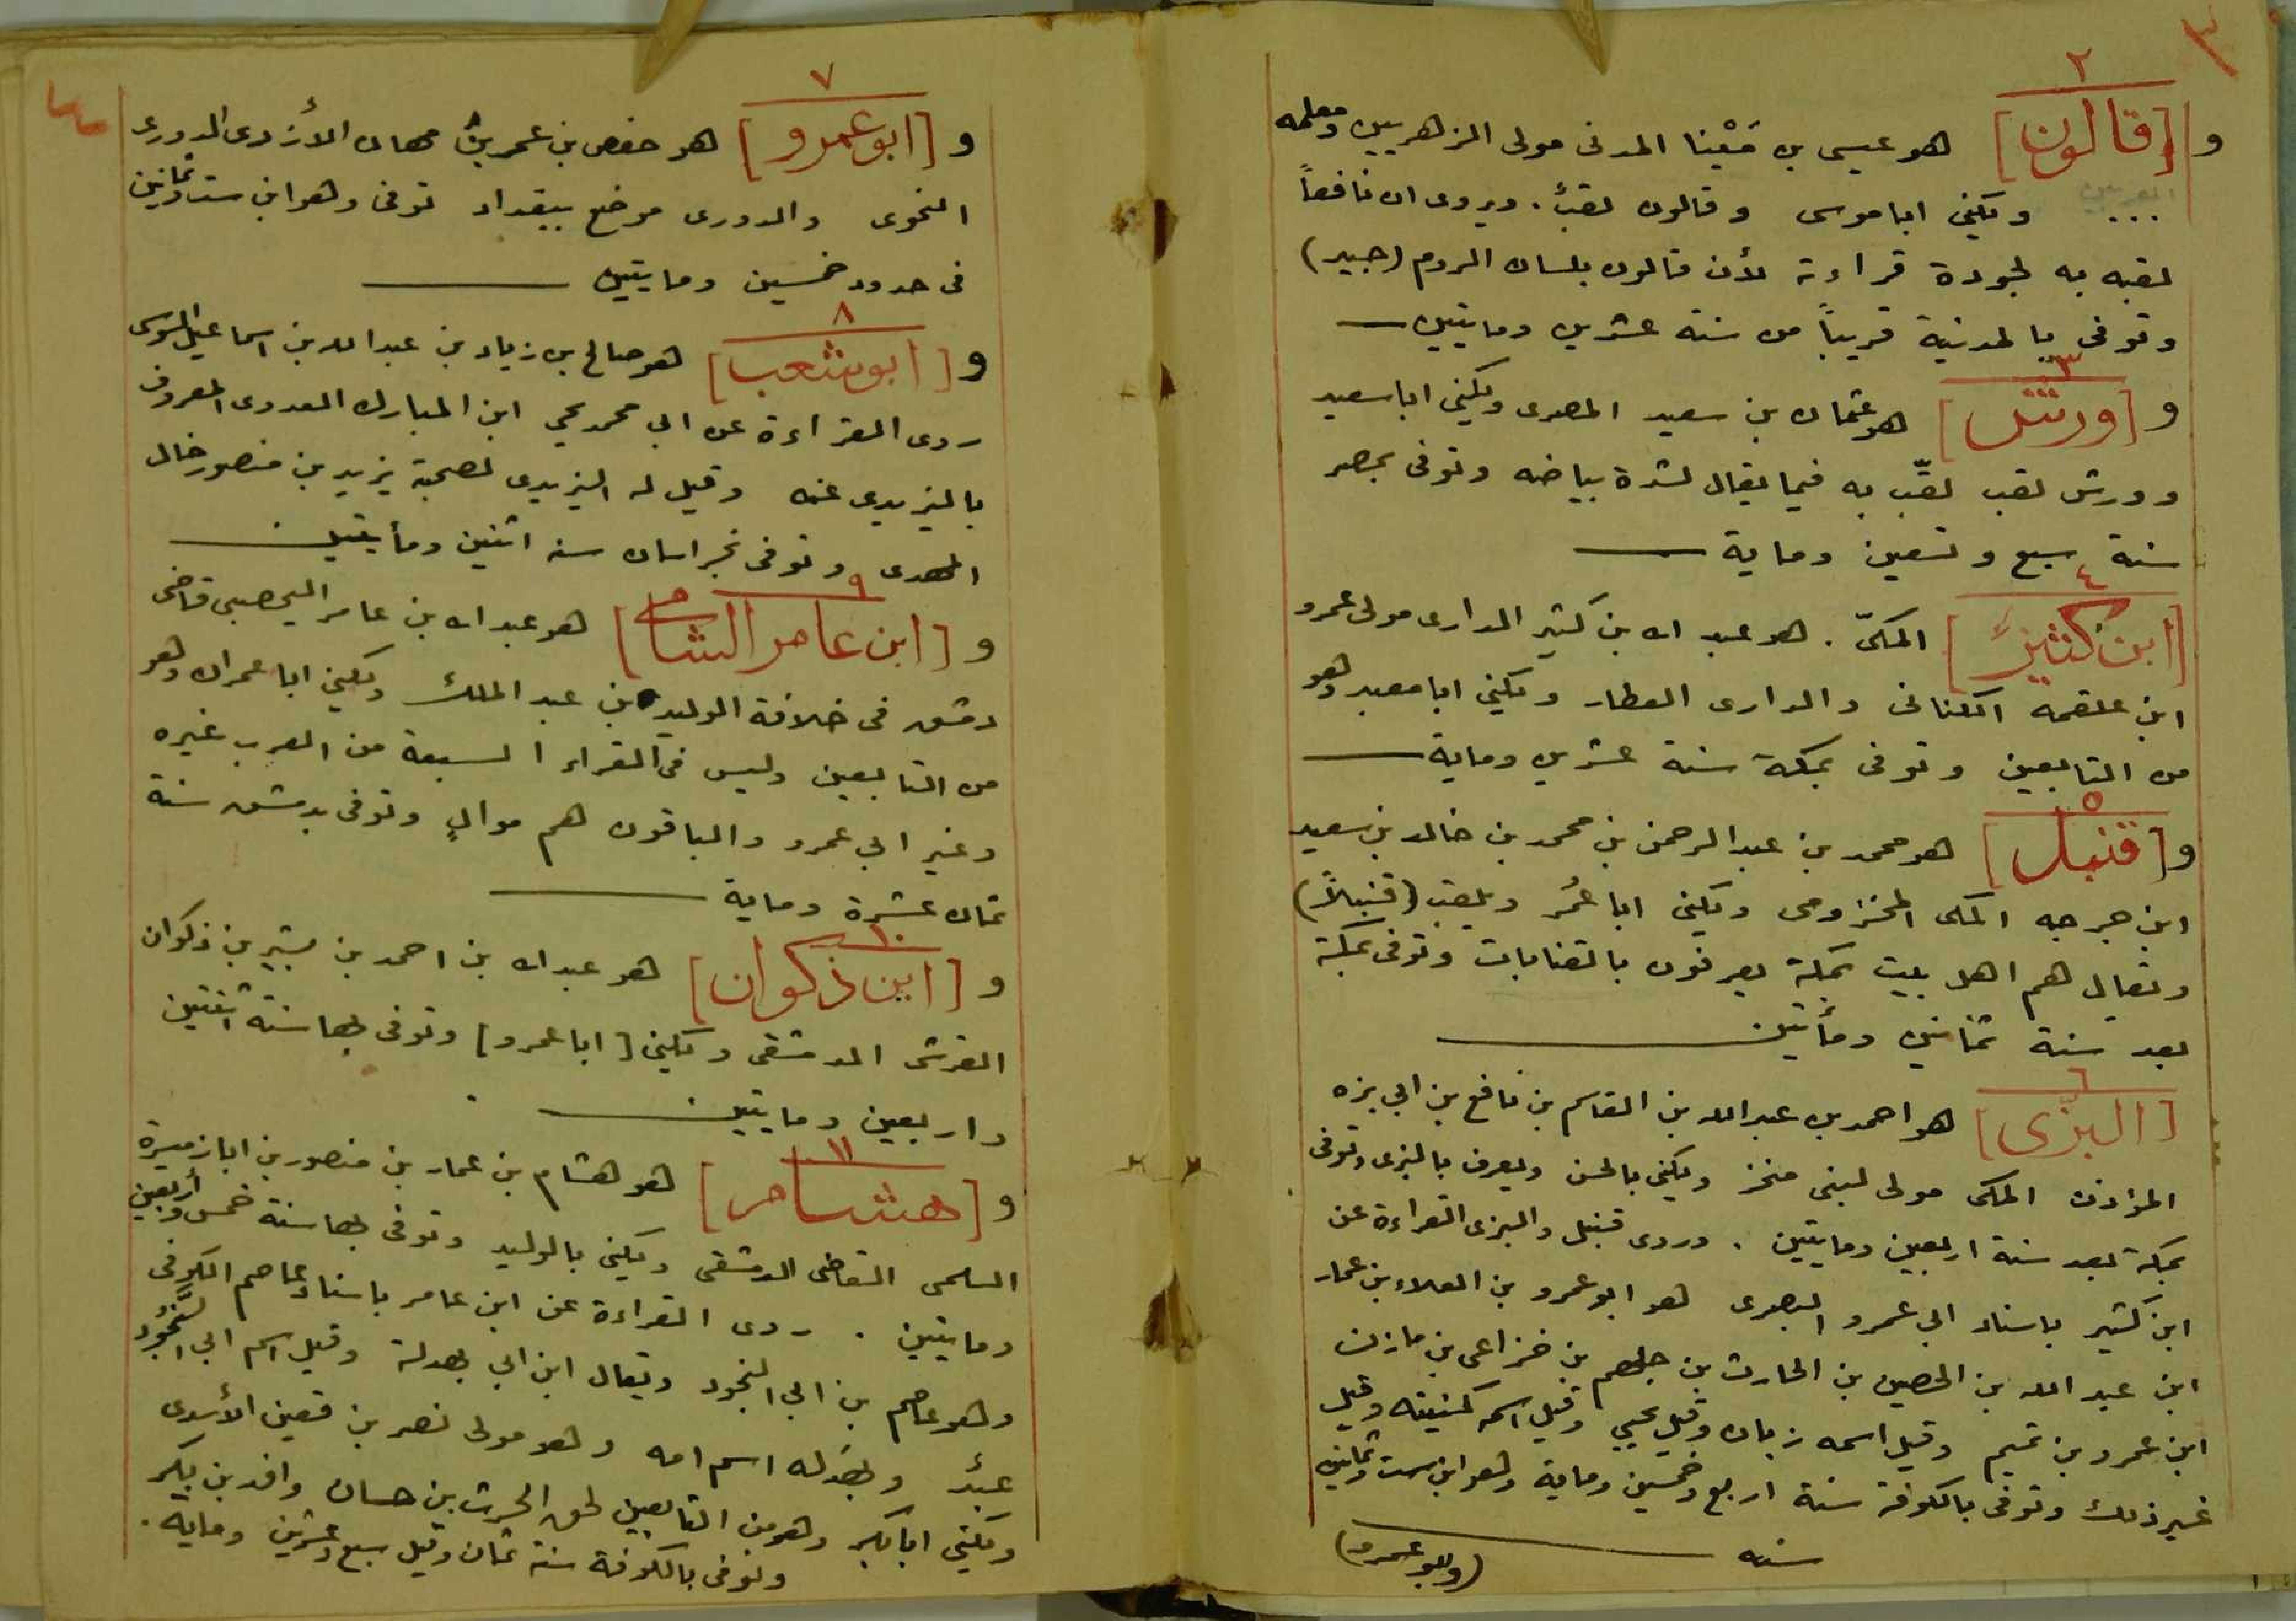 ٣
٢
و [قالون] هو عيسى بن مَيْنا المدنى مولى الزهريين ومعلمه
العربيه ... ويكنى ابا موسى وقالون لقبٌ. ويروى ان نافعاً
لقبه به لجودة قراءته لأن قالون بلسان الروم (جيد)
وتوفى بالمدنية قريباً من سنة عشرين ومايتين
٣
و [ورش] هو عثمان بن سعيد المصرى ويكنى ابا سعيد
وورش لقب لقّب به فيما يقال لشدة بياضه وتوفى بمصر
سنة سبع وتسعين وماية
٤
[ابن كثير] المكىّ. هو عبد الله بن كثير الدارى مولى عمرو
ابن علقمه الكنانى والدارى العطار ويكنى ابا معبد وهو
من التابعين وتوفى بمكة سنة عشرين وماية
٥
و [قنبل] هو محمد بن عبد الرحمن بن محمد بن خالد بن سعيد
ابن جرجه المكى المخزومى ويكنى ابا عُمر ويلقب (قنبلاً)
ويقال هم اهل بيت بمكة يعرفون بالقنابات وتوفى بمكة
بعد سنة ثمانين ومأيتين
٦
[البزّى] هو احمد بن عبد الله بن القاسم بن نافع بن ابى بزه
المؤذن المكى مولى لبنى مخز ويكنى بالحسن ويعرف بالبزى وتوفى
بمكة بعد سنة اربعين ومايتين. وروى قنبل والبزى القراءة عن
ابن كثير باسناد ابى عمرو البصرى هو ابو عمرو بن العلاء بن عمار
ابن عبد الله بن الحصين بن الحارث بن جلهم بن خزاعى بن مازن
ابن عمرو بن تميم وقيل اسمه زبان وقيل يحيى وقيل اسمه كنيته وقيل
غير ذلك وتوفى بالكوفة سنة اربع وخمسين وماية وهو ابن ست وثمانين
سنه
(وابو عمرو)
٧
و [ابو عمرو] هو حفص بن عمر بن صهبان الأزدى الدورى
النحوى والدورى موضع ببغداد توفى وهو ابن ست وثمانين
فى حدود خمسين ومايتين
٨
و [ابو شعب] هو صالح بن زياد بن عبد الله بن اسماعيل السوسى
روى القراءة عن ابى محمد يحيى ابن المبارك العدوى المعروف
باليزيدى عنه وقيل له اليزيدى لصحبة يزيد بن منصور خال
المهدى وتوفى بخراسان سنه اثنين ومأيتين
٩
و [ابن عامر الشامى] هو عبد الله بن عامر اليحصبى قاضى
دمشق فى خلافة الوليد بن عبد الملك ويكنى ابا عمران وهو
من التابعين وليس فى القراء السبعة من العرب غيره
وغير ابى عمرو والباقون هم موالٍ وتوفى بدمشق سنة
ثمان عشرة وماية
١٠
و [ابن ذكوان] هو عبد الله بن احمد بن بشير بن ذكوان
القرشى الدمشقى ويكنى [ابا عمرو] وتوفى بها سنة اثنتين
واربعين ومايتين
١١
و [هشام] هو هشام بن عمار بن منصور بن ابان ميسرة
السلمى القاضى الدمشقى ويكنى بالوليد وتوفى بها سنة خمس وأربعين
ومايتين. روى القراءة عن ابن عامر باسناد عاصم الكوفى
وهو عاصم بن ابى النجود ويقال ابن ابى بهدلة وقيل اسم ابى النَّجُود
عبدٌ وبهدله اسم امه وهو مولى نصر بن قعين الأسدى
ويكنى ابا بكر وهو من التابعين لحق الحرث بن حسان وافد بن بكر
وتوفى بالكوفة سنة ثمان وقيل سبع وعشرين وماية.